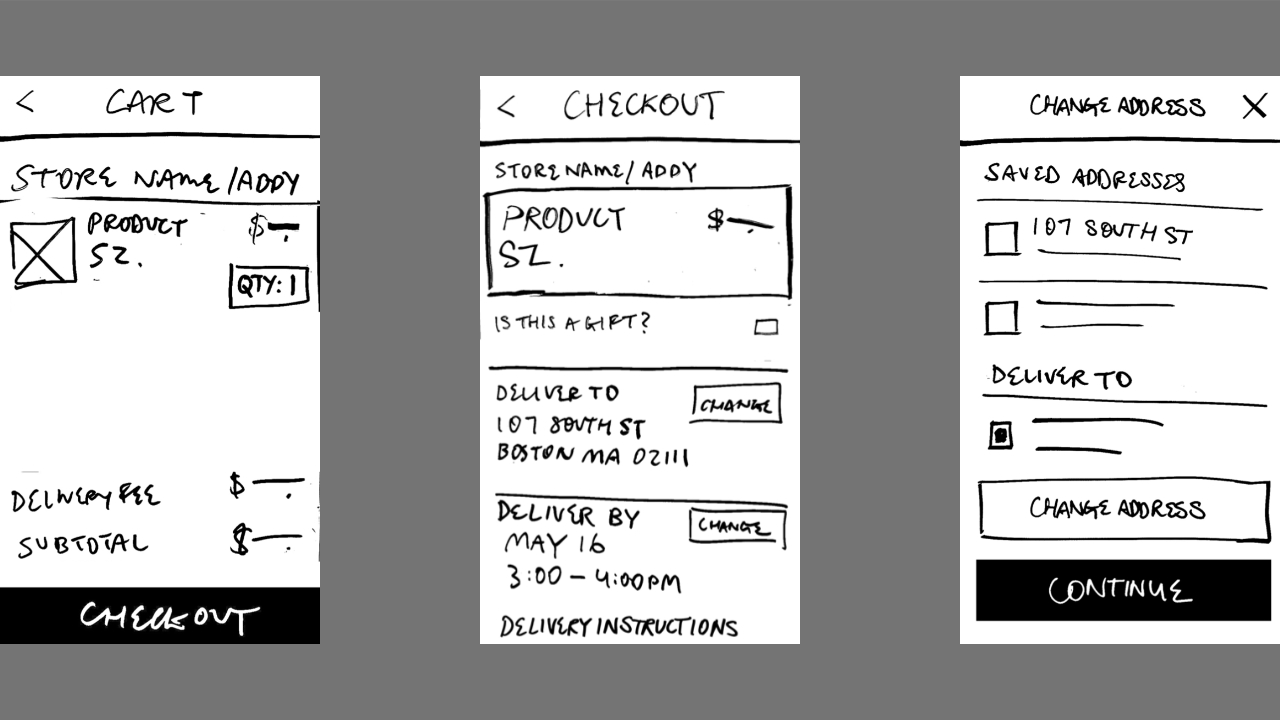 < CART
STORE NAME/ADDY
PRODUCT $ .
SZ.
QTY: 1
DELIVERY FEE $ .
SUBTOTAL $ .
CHECKOUT
< CHECKOUT
STORE NAME/ ADDY
PRODUCT $ .
SZ.
IS THIS A GIFT?
DELIVER TO CHANGE
107 SOUTH ST
BOSTON MA 02111
DELIVER BY CHANGE
MAY 16
3:00 – 4:00PM
DELIVERY INSTRUCTIONS
CHANGE ADDRESS X
SAVED ADDRESSES
107 SOUTH ST
DELIVER TO
CHANGE ADDRESS
CONTINUE